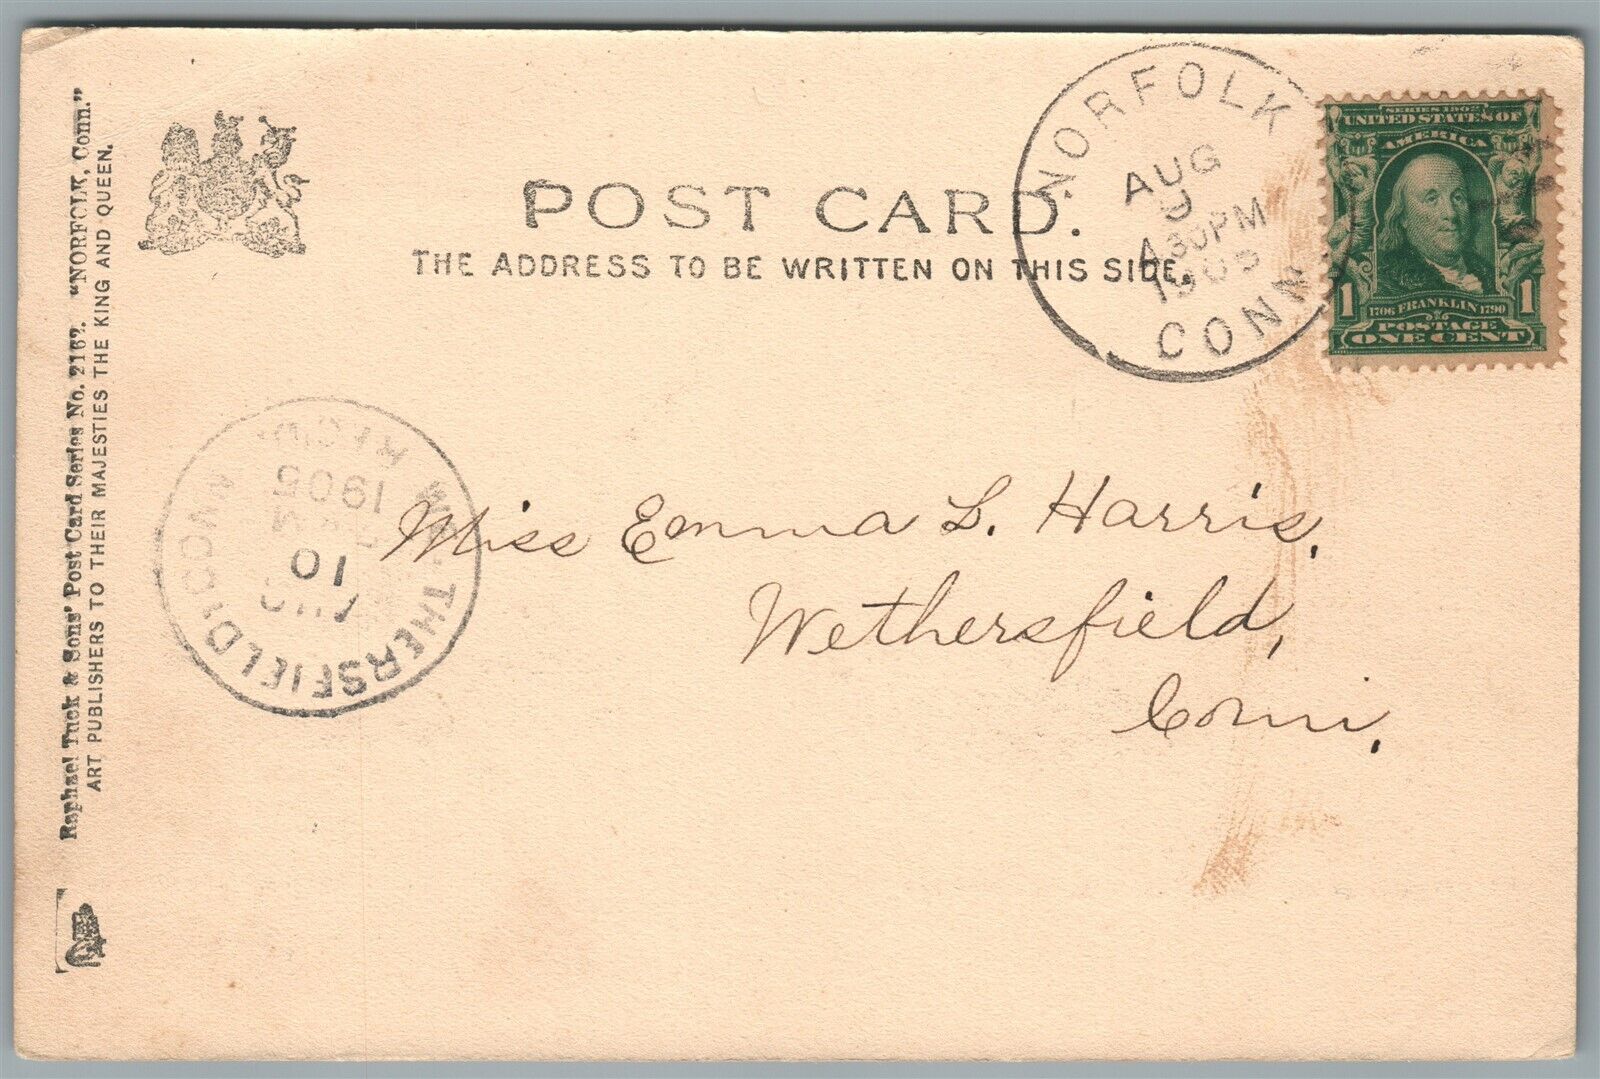 POST CARD.
THE ADDRESS TO BE WRITTEN ON THIS SIDE.
NORFOLK
AUG
9
4 30 PM
1905
CONN
SERIES 1902
UNITED STATES OF
AMERICA
1 1
1706 FRANKLIN 1790
POSTAGE
ONE CENT
Raphael Tuck & Sons' Post Card Series No. 2162. "NORFOLK, Conn."
ART PUBLISHERS TO THEIR MAJESTIES THE KING AND QUEEN.
WETHERSFIELD CONN
AUG
10
1905
REC'D
Miss Emma L. Harris,
Wethersfield,
Conn.